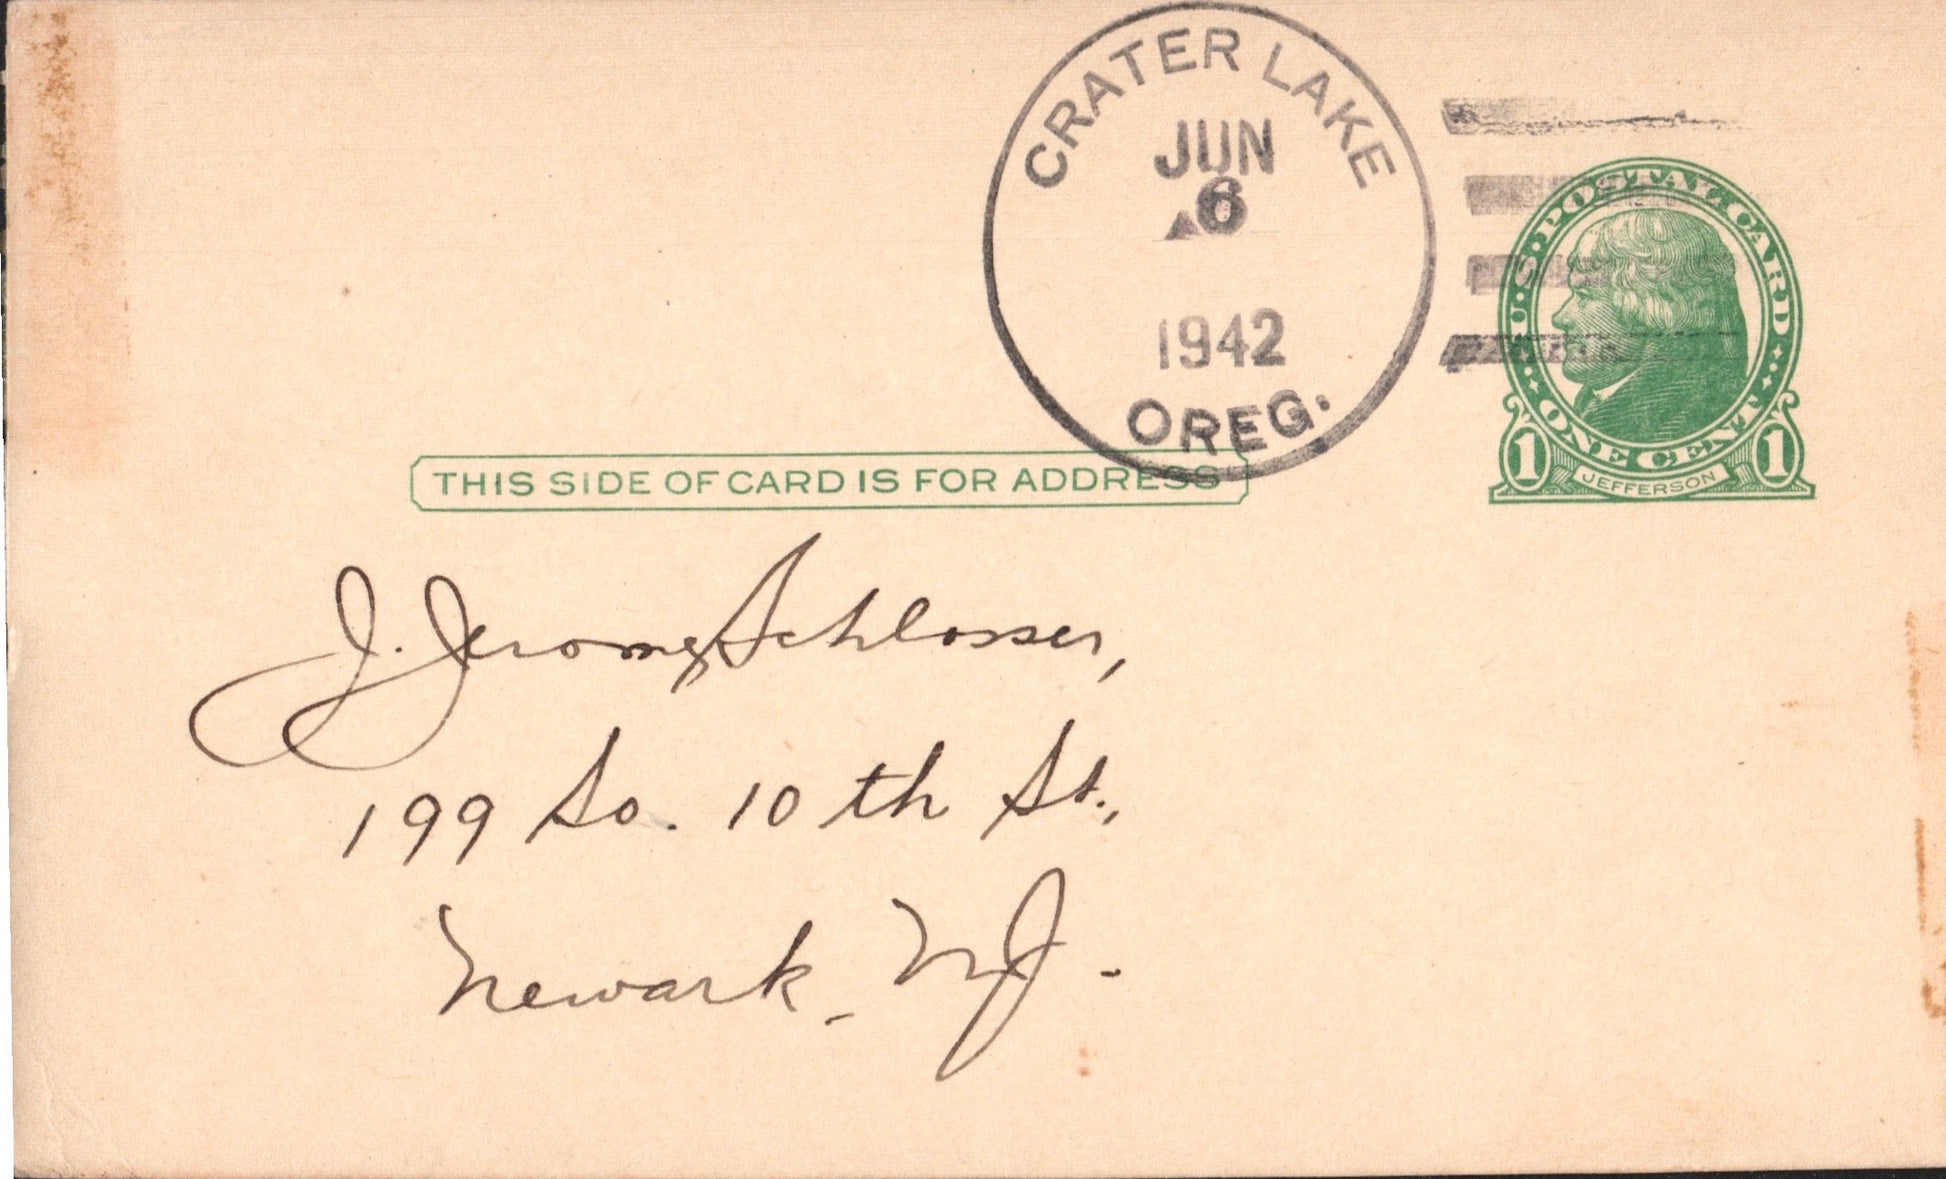 CRATER LAKE
JUN
6
1942
OREG.
U.S. POSTAL CARD
ONE CENT
1 1
JEFFERSON
THIS SIDE OF CARD IS FOR ADDRESS
J. Jerome Schlosser,
199 So. 10th St.,
Newark, N.J.